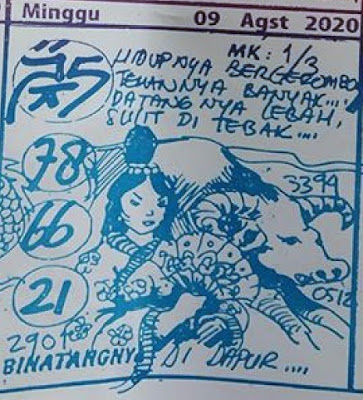 Minggu 09 Agst 2020
MK: 1/3
HIDUPNYA BERGEROMBOL
TEMANNYA BANYAK....
DATANGNYA LEBAH,
SULIT DI TEBAK....
78
3394
66
21
0512
2901
BINATANGNY DI DAPUR....